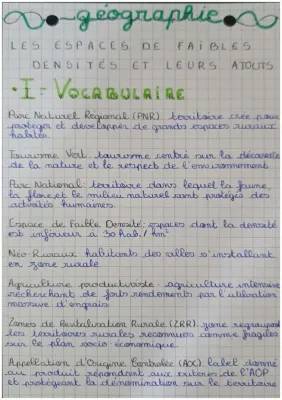 géographie
LES ESPACES DE FAIBLES
DENSITÉS ET LEURS ATOUTS
• I = VOCABULAIRE
Parc Naturel Régional (PNR): territoire crée pour
protéger et développer de grands espaces ruraux
habités.
Tourisme Vert: tourisme centré sur la découverte
de la nature et le respect de l'environnement
Parc National: territoire dans lequel la faune,
la flore et le milieu naturel sont protégés des
activités humaines.
Espace de Faible Densité: espaces dont la densité
est inférieur à 30 hab./km²
Néo-Ruraux: habitants des villes s'installant
en zone rurale
Agriculture productiviste: agriculture intensive
recherchant de forts rendements par l'utilisation
massive d'engrais
Zones de Revitalisation Rurale (ZRR): zone regroupant
les territoires rurales reconnues comme fragiles
sur le plan socio-économique.
Appellation d'Origine Contrôlée (AOC): label donné
au produit répondant aux critères de l'AOP
et protégeant la dénomination sur le territoire